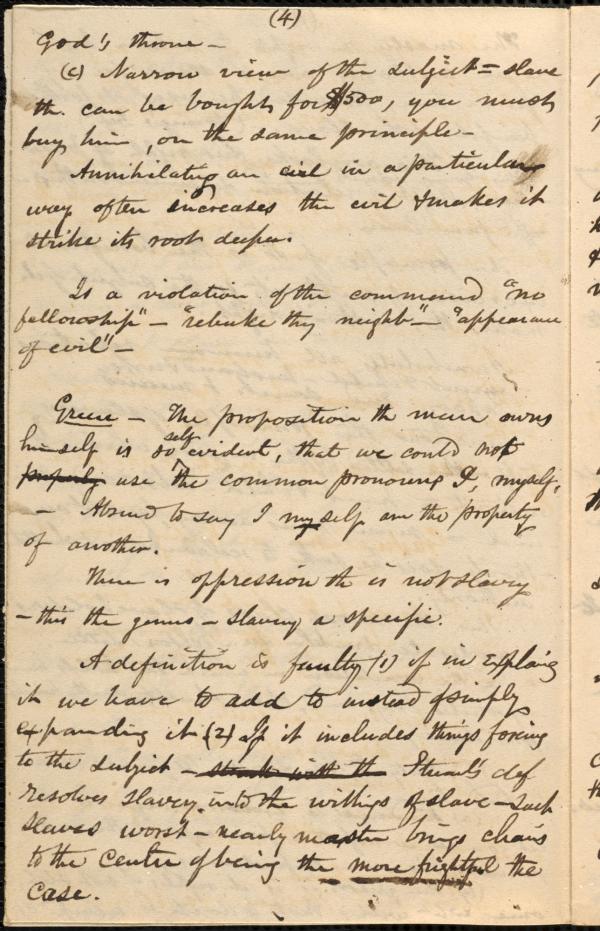 (4)
God's throne –
(c) Narrow view of the subject = slave
th. can be bought for $500, you must
buy him, on the same principle –
Annihilating an evil in a particular
way often increases the evil & makes it
strike its root deeper.
Is a violation of the command "no
fellowship" – "rebuke thy neighb" – "appearance
of evil" –
Green – The proposition th man owns
himself is so self evident, that we could not
properly use the common pronouns I, myself,
– Absurd to say I myself am the property
of another.
There is oppression th is not slavery
– this the genus – slavery a specific.
A definition is faulty (1) if in explaing
it we have to add to instead of simply
expanding it (2) If it includes things foreing
to the subject – Stuart's def
resolves slavery into the willings of slave – such
slaves worst – nearly master brings chains
to the centre of being the more frightful the
case.